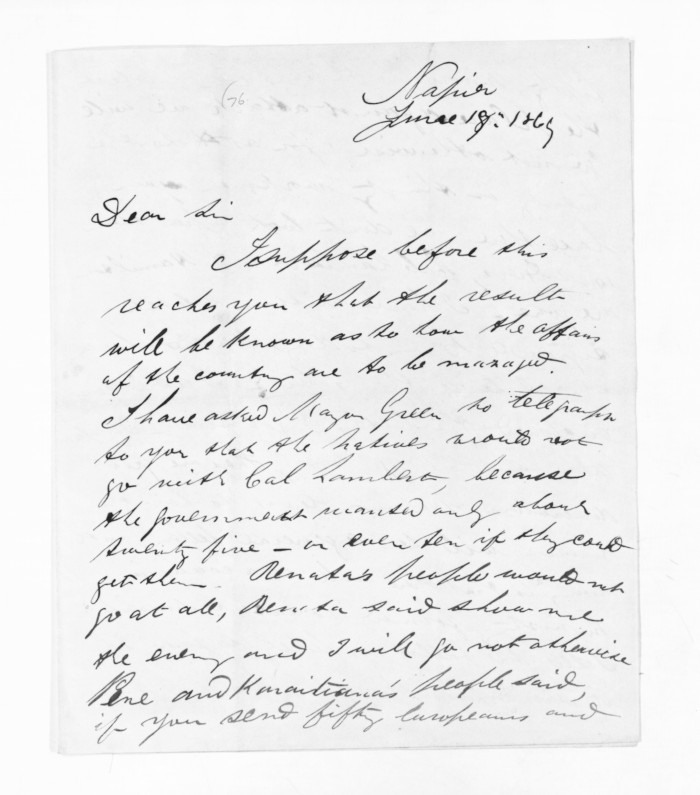 Napier
June 18th 1869
Dear Sir
I suppose before this
reaches you that the result
will be known as to how the affairs
of the country are to be managed.
I have asked Mayor Green to telegraph
to you that the natives would not
go with Col Lambert, because
the government wanted only about
twenty five - or even ten if they could
get them. Renata's people would not
go at all, Renata said show me
the enemy and I will go not otherwise
Pene and Karaitiana's people said,
if you send fifty Europeans and